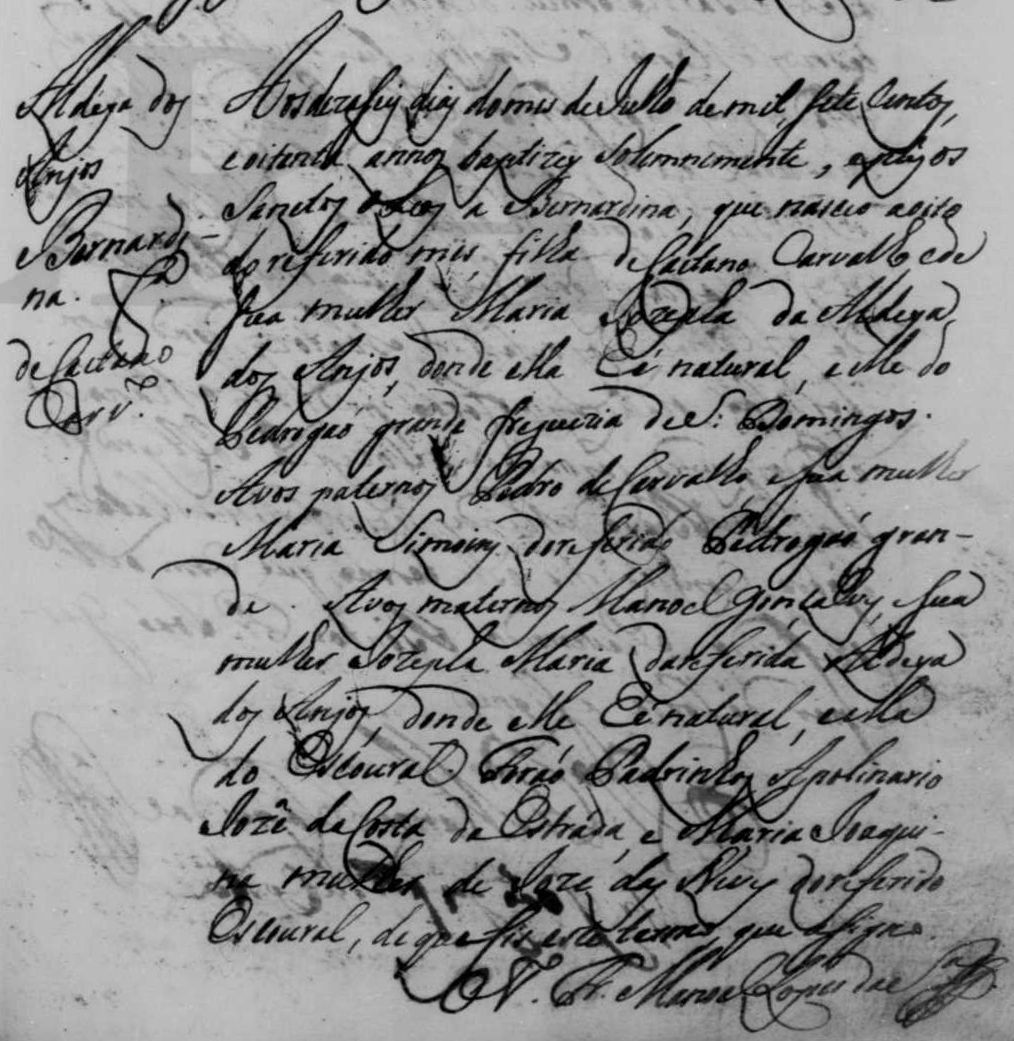 Aldeya dos
Anjos
Bernardi-
na. fª
de Caetano
Carv.º
Aos dezaseis dias do mes de Julho de mil sete centos,
e oitenta annos baptizey solemnemente, e puz os
Sanctos Oleos a Bernardina, que nasceo a oito
do referido mes filha de Caetano Carvalho e de
sua mulher Maria Jozepha da Aldeya
dos Anjos, donde ella hé natural, e elle do
Pedrogaõ grande freguezia de S. Domingos.
Avos paternos Pedro de Carvalho e sua mulher
Maria Simoins do referido Pedrogaõ gran-
de. Avos maternos Manoel Gonçalves e sua
mulher Jozepha Maria da referida Aldeya
dos Anjos, donde elle hé natural, e ella
do Escoural Foraõ Padrinhos Apolinario
Jozê da Costa da Estrada, e Maria Joaqui-
na mulher de Jozé das Neves do referido
Escoural, de que fis este termo que asigno.
O V. Fr.